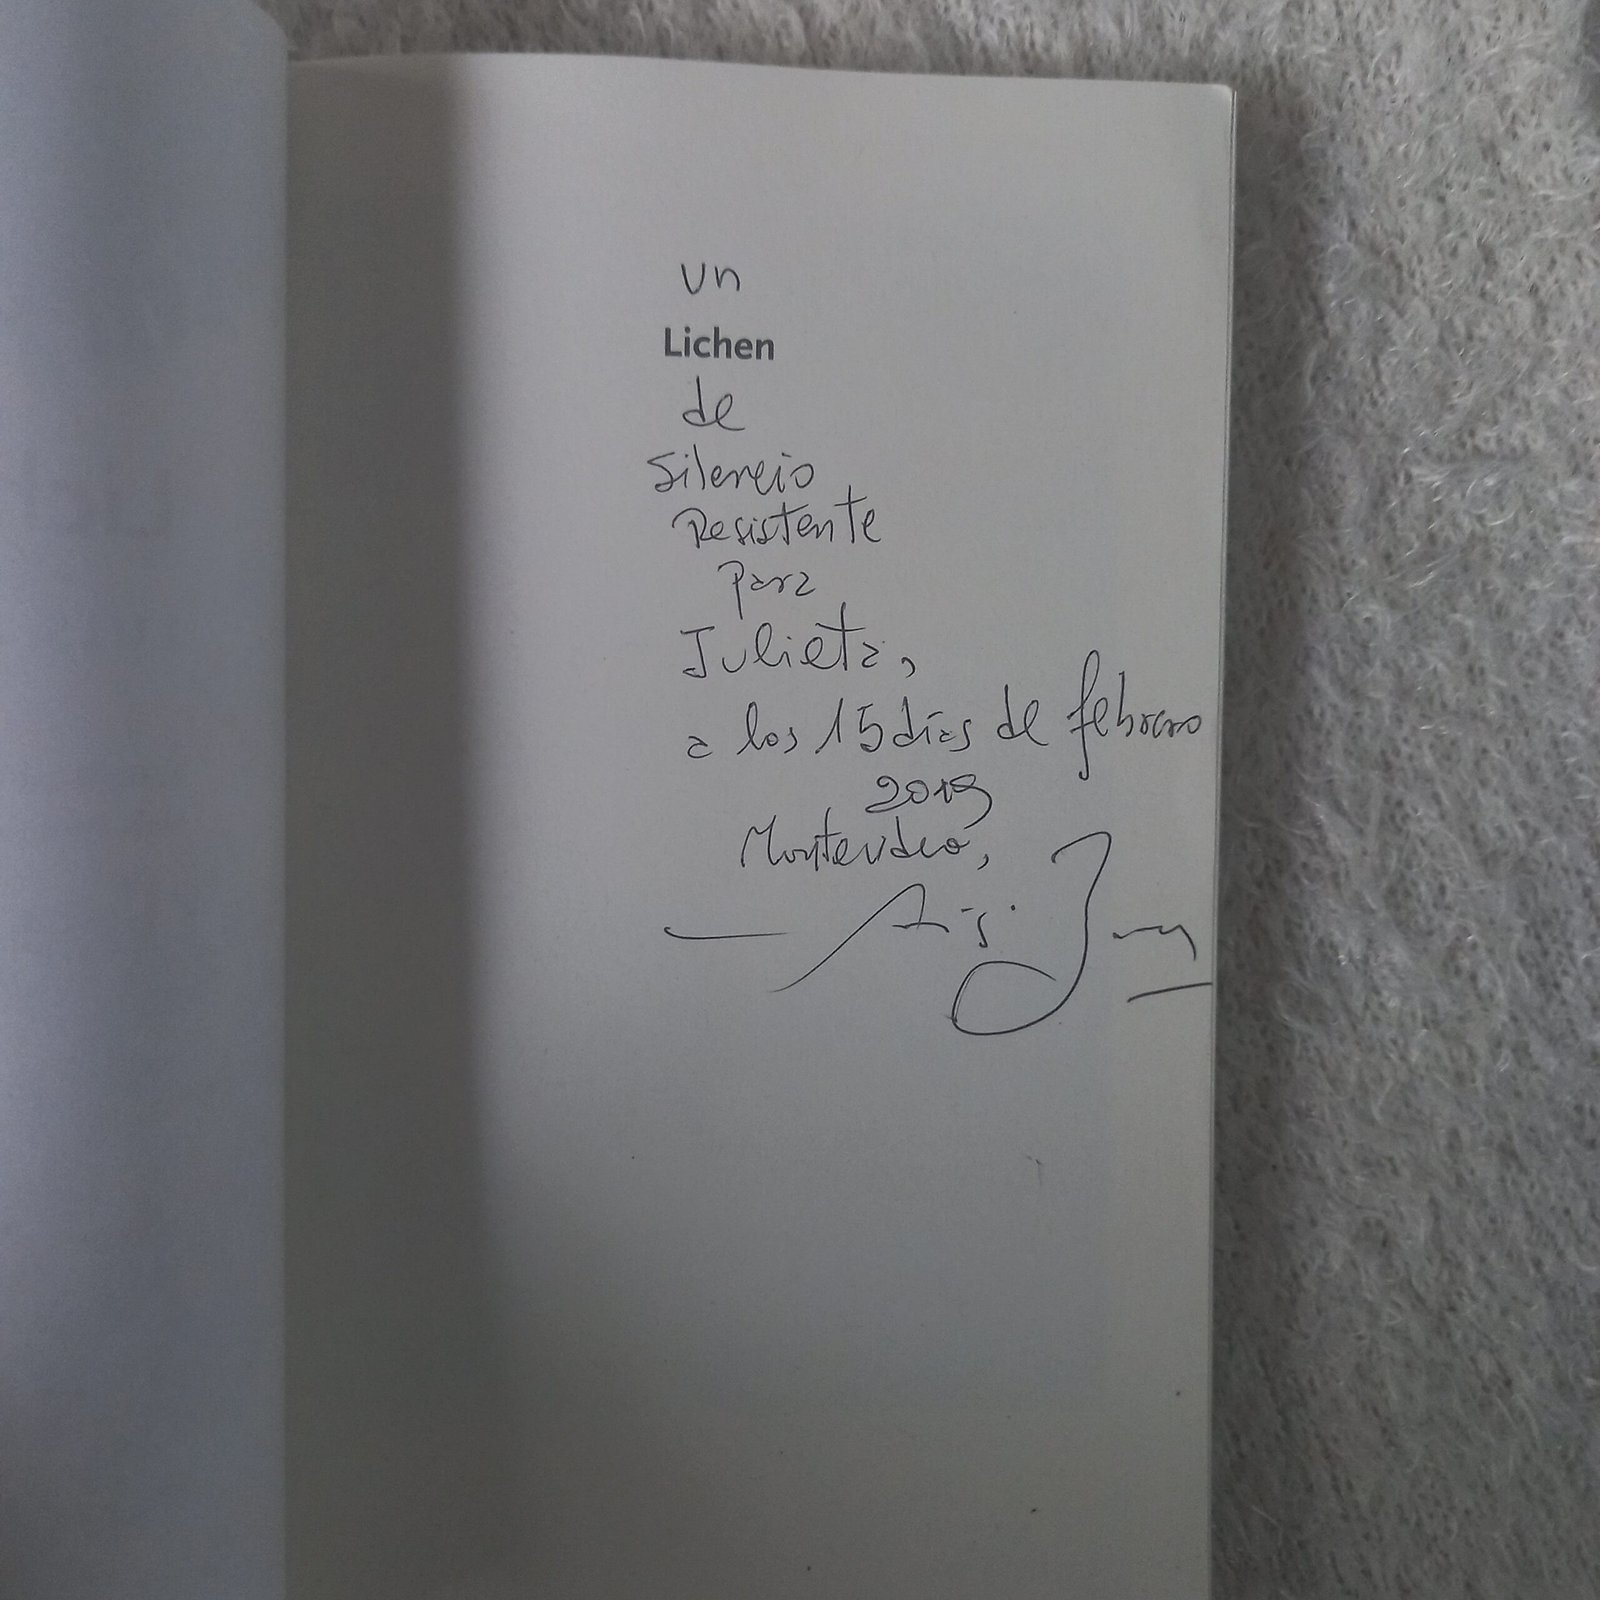 un
Lichen
de
Silencio
Resistente
para
Julieta,
a los 15 días de febrero
2019
Montevideo,